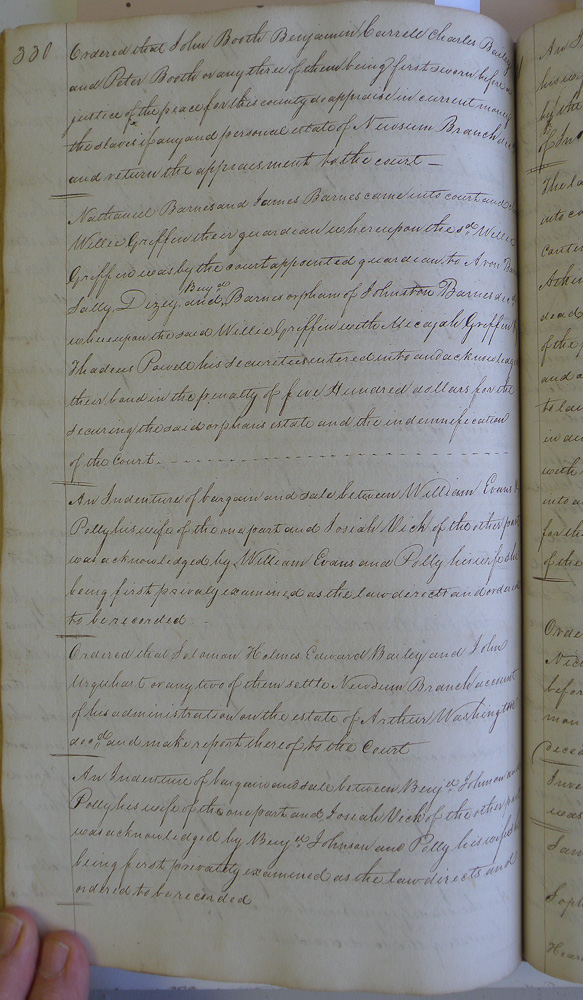 330
Ordered that John Booth Benjamin Carrell Charles Bailey
and Peter Booth or any three of them being first sworn before a
justice of the peace for this county do appraise in current money
the slaves if any and personal estate of Newsum Branch
and return the appraesment to the court —
Nathaniel Barnes and James Barnes came into court and
Willie Griffin their guardian whereupon the sd. Willie
Griffin was by the court appointed guardian to
Sally, Dizey, and Benjn. Barnes orphan of Johnston Barnes
whereupon the said Willie Griffin with Micajah Griffin
Thadeus Powell his securities entered into and acknowledg
their bond in the penalty of five Hundred dollars for the
securing the said orphans estate and the indemnification
of the Court.
An Indenture of bargain and sale between William Evans
Polly his wife of the one part and Josiah Vick of the other part
was acknowledged by William Evans and Polly his wife she
being first privaly examined as the law directs and ordered
to be recorded
Ordered that Solomon Holmes Edward Bailey and John
Urquhart or any two of them settle Newsum Branch account
of his administration on the estate of Arthur Washington
decd. and make report thereof to the Court
An Indenture of bargain and sale between Benjn. Johnson and
Polly his wife of the one part and Josiah Vick of the other part
was acknowledged by Benjn. Johnson and Polly his wife she
being first privately examined as the law directs and
ordered to be recorded